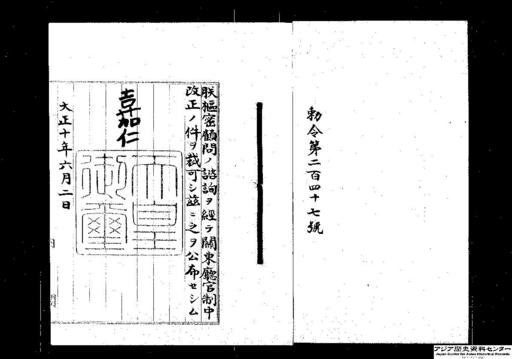 勅令第二百四十七號
朕樞密顧問ノ諮詢ヲ經テ關東廳官制中
改正ノ件ヲ裁可シ玆ニ之ヲ公布セシム
嘉仁
天皇
御璽
大正十年六月二日
アジア歴史資料センター
Japan Center for Asian Historical Records